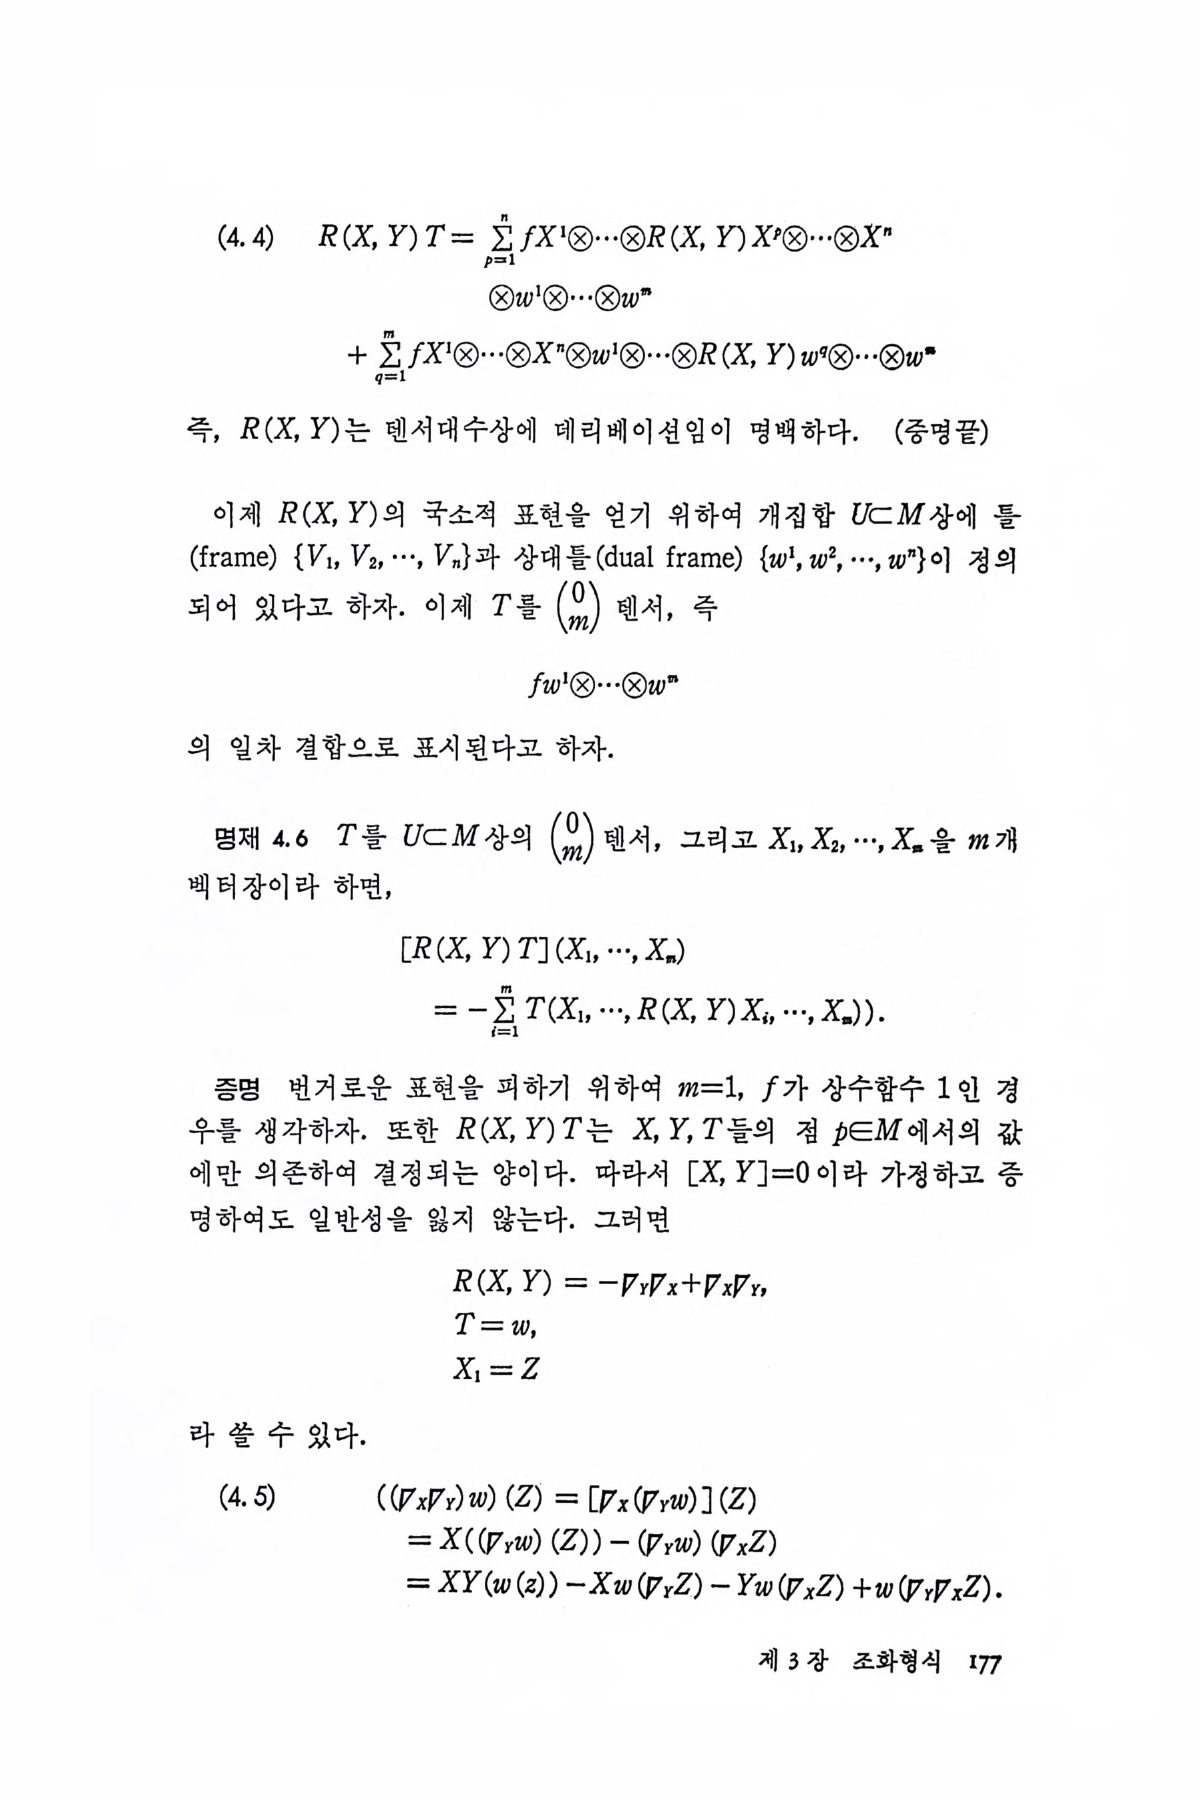 (4. 4) R(X, Y) T = \sum_{p=1}^{n} fX¹⊗⋯⊗R(X, Y) Xᵖ⊗⋯⊗Xⁿ
⊗w¹⊗⋯⊗wᵐ
+ \sum_{q=1}^{m} fX¹⊗⋯⊗Xⁿ⊗w¹⊗⋯⊗R(X, Y) w^q⊗⋯⊗wᵐ
즉, R(X, Y)는 텐서대수상에 데리베이션임이 명백하다. (증명끝)
이제 R(X, Y)의 국소적 표현을 얻기 위하여 개집합 U⊂M상에 틀
(frame) {V₁, V₂, ⋯, Vₙ}과 상대틀(dual frame) {w¹, w², ⋯, wⁿ}이 정의
되어 있다고 하자. 이제 T를 \binom{0}{m} 텐서, 즉
fw¹⊗⋯⊗wᵐ
의 일차 결합으로 표시된다고 하자.
명제 4.6 T를 U⊂M상의 \binom{0}{m} 텐서, 그리고 X₁, X₂, ⋯, Xₘ을 m개
벡터장이라 하면,
[R(X, Y) T] (X₁, ⋯, Xₘ)
= −\sum_{i=1}^{m} T(X₁, ⋯, R(X, Y) Xᵢ, ⋯, Xₘ)).
증명 번거로운 표현을 피하기 위하여 m=1, f가 상수함수 1인 경
우를 생각하자. 또한 R(X, Y) T는 X, Y, T들의 점 p∈M에서의 값
에만 의존하여 결정되는 양이다. 따라서 [X, Y]=0이라 가정하고 증
명하여도 일반성을 잃지 않는다. 그러면
R(X, Y) = −∇_Y∇_X+∇_X∇_Y,
T = w,
X₁ = Z
라 쓸 수 있다.
(4. 5) ((∇_X∇_Y) w) (Z) = [∇_X(∇_Y w)] (Z)
= X((∇_Y w) (Z)) − (∇_Y w) (∇_X Z)
= XY(w(z)) − Xw(∇_Y Z) − Yw(∇_X Z) + w(∇_Y∇_X Z).
제 3 장 조화형식 177